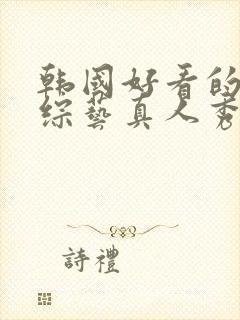 韩國好看的
综藝真人秀
詩禮